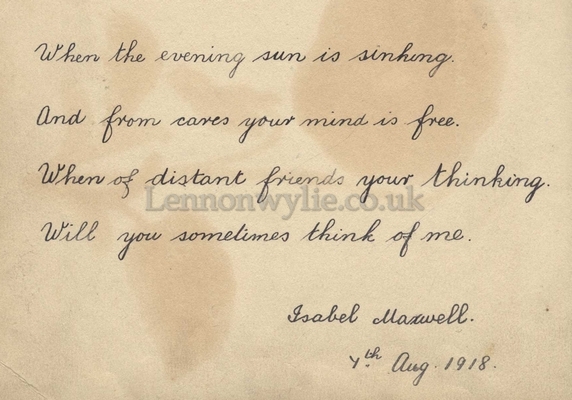 When the evening sun is sinking.
And from cares your mind is free.
When of distant friends your thinking.
Lennonwylie.co.uk
Will you sometimes think of me.
Isabel Maxwell.
7th Aug. 1918.